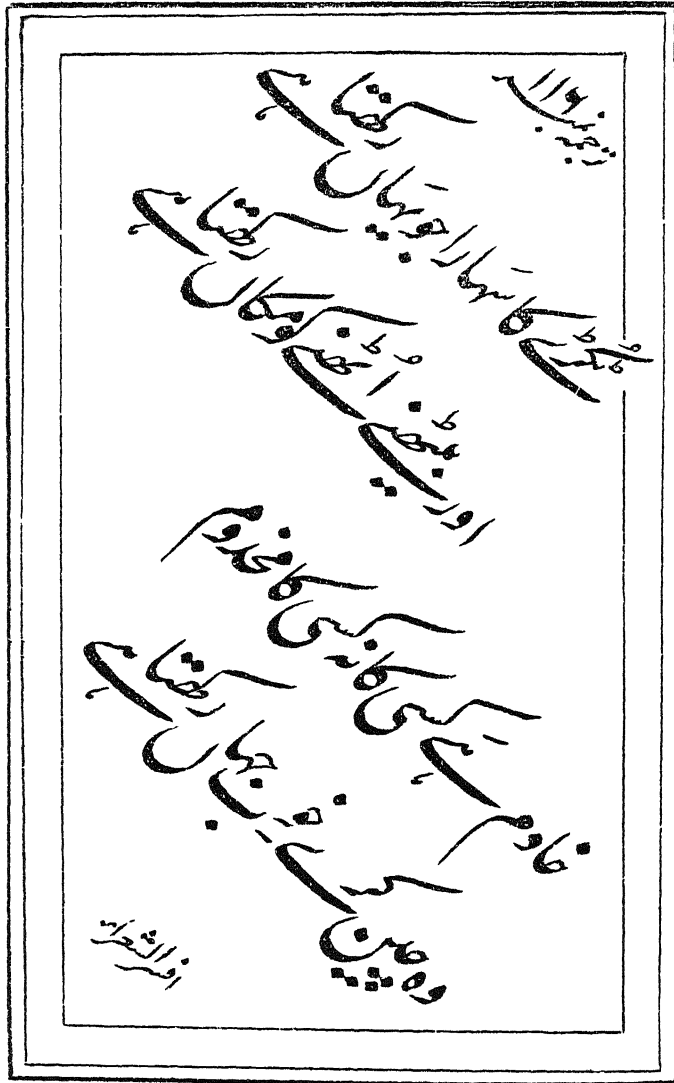 ترجمہ نمبر
ٹُکڑے کا سَہارا جو یَہاں رکھتا ہے
اور بیٹھنے اُٹھنے کو مکاں رکھتا ہے
خادم ہے کسی کا نہ کسی کا مخدوم
وہ چین کرے خوب جہاں رکھتا ہے
افسر الشعراء